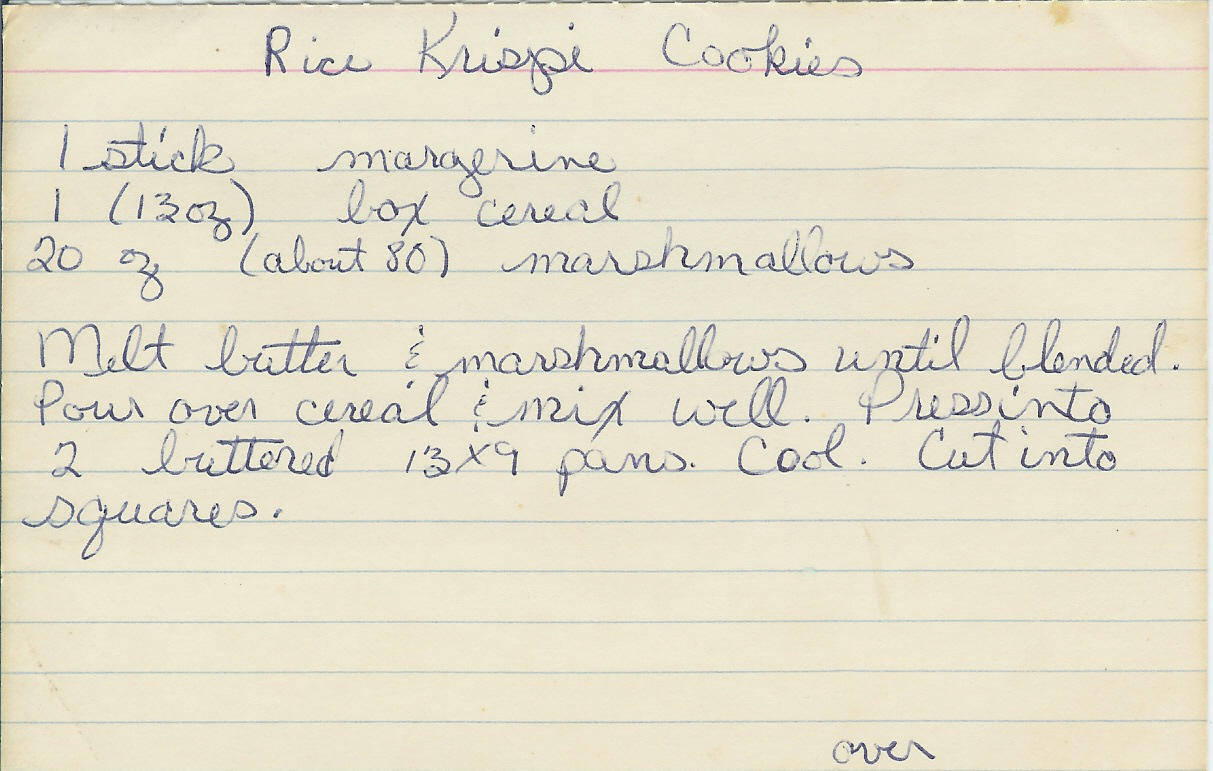 Rice Krispi Cookies
1 stick margerine
1 (13oz) box cereal
20 oz (about 80) marshmallows
Melt butter & marshmallows until blended.
Pour over cereal & mix well. Press into
2 buttered 13x9 pans. Cool. Cut into
squares.
over